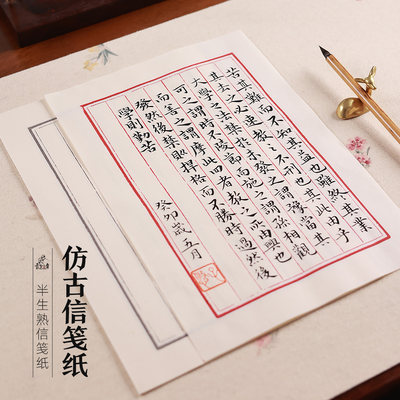 苦其難而不知其益也雖終其業
其去之必速教之不刑也其此由乎
大學之法禁於未發之謂豫當其
可之謂時不陵節而施之謂孫相觀
而善之謂摩此四者教之所由興也
發然後禁則捍格而不勝時過然後
學則勤苦
癸卯歲五月
仿古信笺纸
半生熟信笺纸